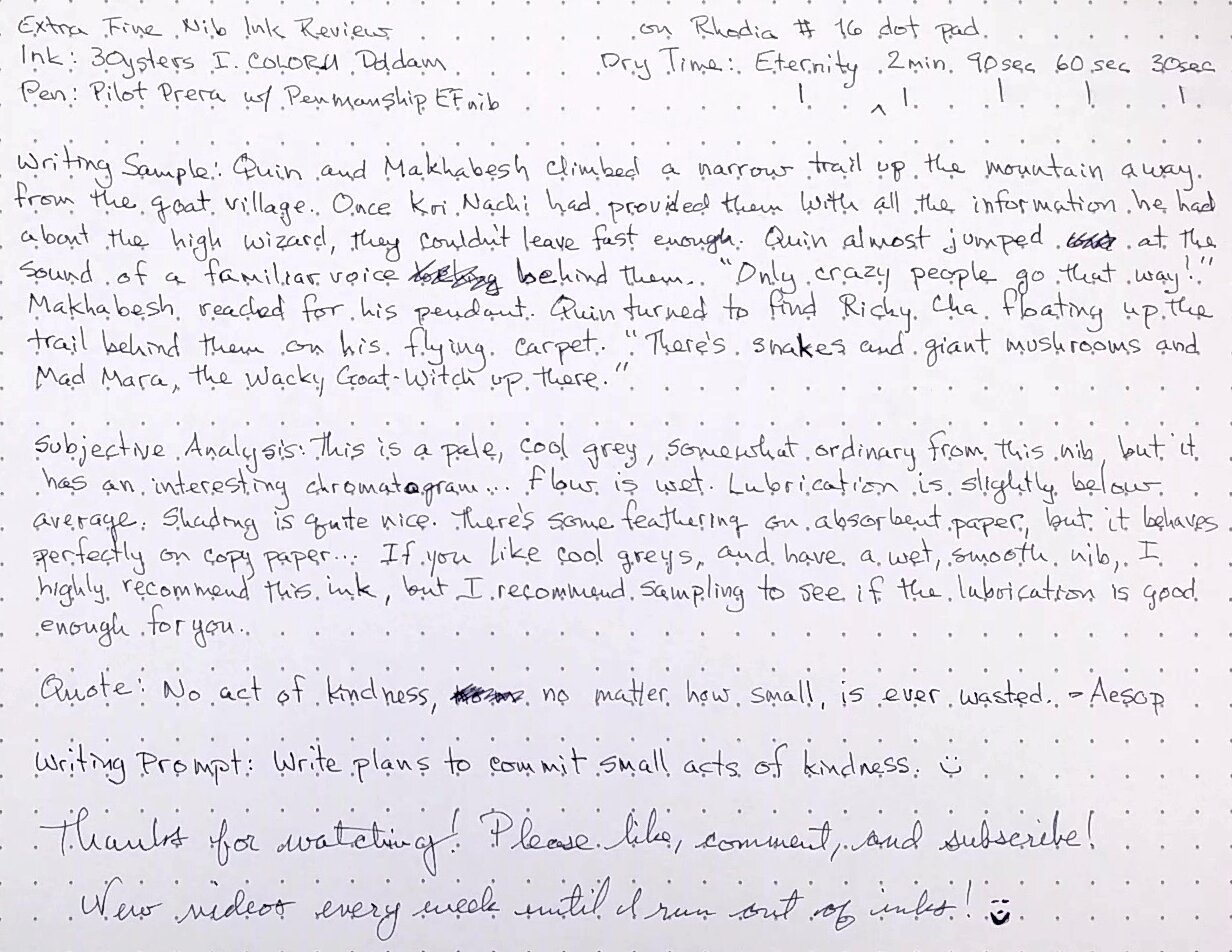 Extra Fine Nib Ink Review on Rhodia # 16 dot pad.
Ink: 3Oysters I. COLOR U Doldam Dry Time: Eternity 2min. 90sec 60 sec 30sec
Pen: Pilot Prera w/ Penmanship EF nib
Writing Sample: Quin and Makhabesh climbed a narrow trail up the mountain away
from the goat village. Once Koi Nachi had provided them with all the information he had
about the high wizard, they couldn't leave fast enough. Quin almost jumped at the
sound of a familiar voice behind them. "Only crazy people go that way!"
Makhabesh reached for his pendant. Quin turned to find Richy Cha floating up the
trail behind them on his flying carpet. "There's snakes and giant mushrooms and
Mad Mara, the Wacky Goat-Witch up there."
Subjective Analysis: This is a pale, cool grey, somewhat ordinary from this nib, but it
has an interesting chromatogram... Flow is wet. Lubrication is slightly below
average. Shading is quite nice. There's some feathering on absorbent paper, but it behaves
perfectly on copy paper... If you like cool greys, and have a wet, smooth nib, I
highly recommend this ink, but I recommend sampling to see if the lubrication is good
enough for you.
Quote: No act of kindness, no matter how small, is ever wasted. - Aesop
Writing Prompt: Write plans to commit small acts of kindness. :)
Thanks for watching! Please like, comment, and subscribe!
New videos every week until I run out of inks!